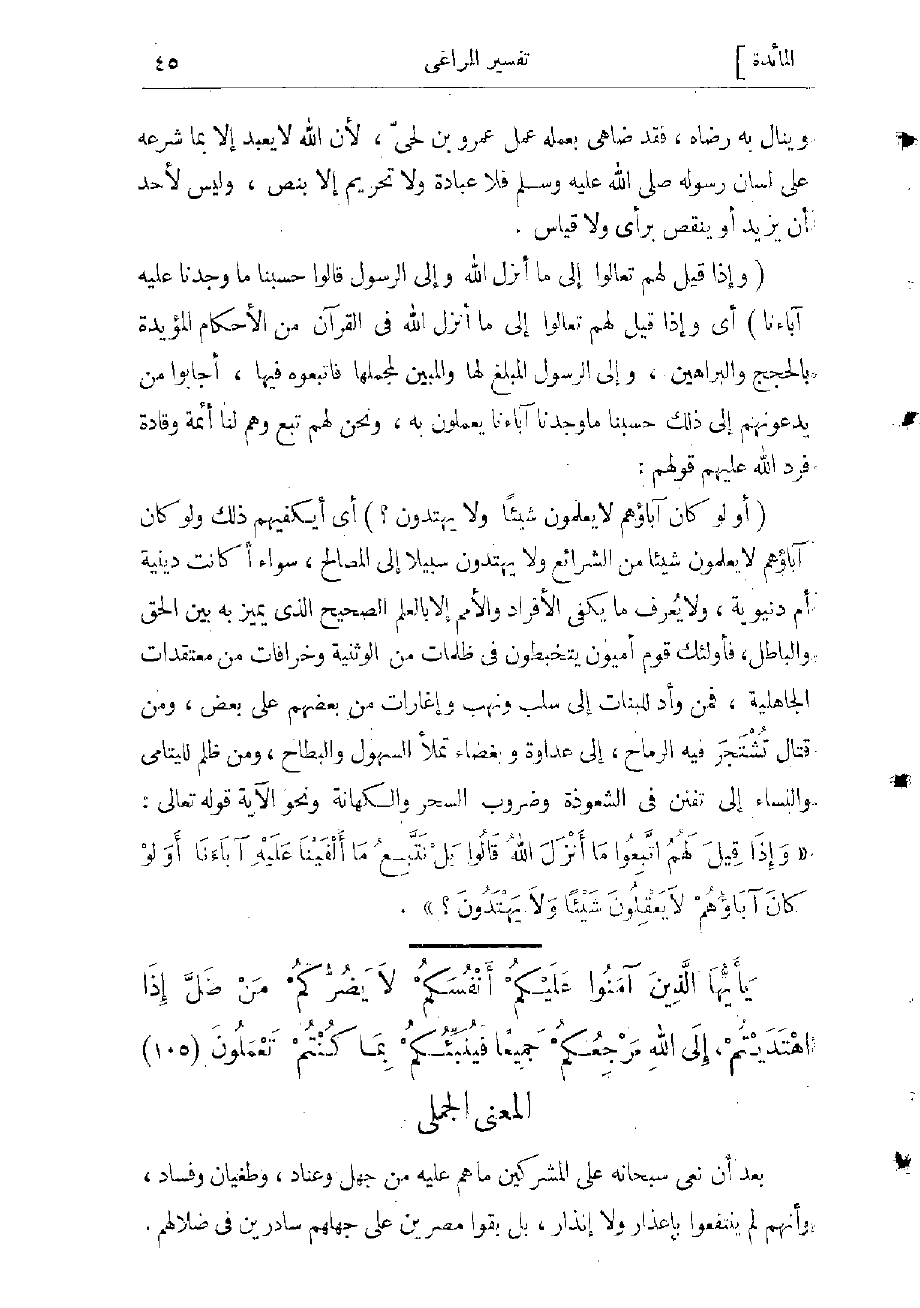 المائدة ] تفسير المراغى ٤٥
وينال به رضاه ، فقد ضاهى بعمله عمل عمرو بن لحىّ ، لأن الله لا يعبد إلا بما شرعه
على لسان رسوله صلى الله عليه وسلم فلا عبادة ولا تحريم إلا بنص ، وليس لأحد
أن يزيد أو ينقص برأى ولا قياس .
( وإذا قيل لهم تعالوا إلى ما أنزل الله وإلى الرسول قالوا حسبنا ما وجدنا عليه
آباءنا ) أى وإذا قيل لهم تعالوا إلى ما أنزل الله فى القرآن من الأحكام المؤيدة
بالحجج والبراهين ، وإلى الرسول المبلغ لها والمبين لمجملها فاتبعوه فيها ، أجابوا من
يدعونهم إلى ذلك حسبنا ما وجدنا آباءنا يعملون به ، ونحن لهم تبع وهم لنا أئمة وقادة
فرد الله عليهم قولهم :
( أو لو كان آباؤهم لا يعلمون شيئًا ولا يهتدون ؟ ) أى أيكفيهم ذلك ولو كان
آباؤهم لا يعلمون شيئا من الشرائع ولا يهتدون سبيلا إلى المصالح ، سواء أكانت دينية
أم دنيوية ، ولا يُعرف ما يكفى الأفراد والأمم إلا بالعلم الصحيح الذى يميز به بين الحق
والباطل، فأولئك قوم أميون يتخبطون فى ظلمات من الوثنية وخرافات من معتقدات
الجاهلية ، فمن وأد للبنات إلى سلب ونهب وإغارات من بعضهم على بعض ، ومن
قتال تُشْتَجَرُ فيه الرماح ، إلى عداوة وبغضاء تملأ السهول والبطاح ، ومن ظلم لليتامى
والنساء إلى تفنن فى الشعوذة وضروب السحر والكهانة ونحو الآية قوله تعالى :
« وَإِذَا قِيلَ لَهُمُ اتَّبِعُوا مَا أَنْزَلَ اللهُ قَالُوا بَلْ نَتَّبِعُ مَا أَلْفَيْنَا عَلَيْهِ آبَاءَنَا أَوَ لَوْ
كَانَ آبَاؤُهُمْ لاَ يَعْقِلُونَ شَيْئًا وَلاَ يَهْتَدُونَ ؟ » .
يَأَيُّهَا الَّذِينَ آمَنُوا عَلَيْكُمْ أَنْفُسَكُمْ لاَ يَضُرُّكُمْ مَنْ ضَلَّ إِذَا
اهْتَدَيْتُمْ، إِلَى اللهِ مَرْجِعُكُمْ جَمِيعًا فَيُنَبِّئُكُمْ بِمَا كُنْتُمْ تَعْمَلُونَ (١٠٥)
المعنى الجملى
بعد أن نعى سبحانه على المشركين ما هم عليه من جهل وعناد ، وطغيان وفساد ،
وأنهم لم ينتفعوا بإعذار ولا إنذار ، بل بقوا مصرين على جهلهم سادرين فى ضلالهم .